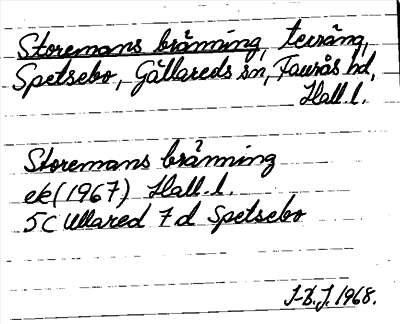 Storemans bränning, terräng,
Spetsebo, Gällareds sn, Faurås hd,
Hall.l.
Storemans bränning
ek (1967) Hall.l.
5C Ullared 7d Spetsebo
J-B.J. 1968.